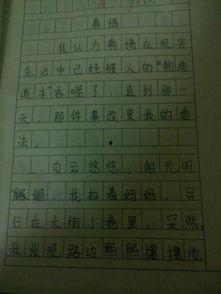 真情
我认为真情在现实
生活中已经被人的"物质
追求"去嗯了，直到那一
天，那件事改变我的看
法。
白云悠悠，阳光明
媚，我拉着妈妈，穿
行在大街小巷里，突然，
我发现路边熙熙攘攘地